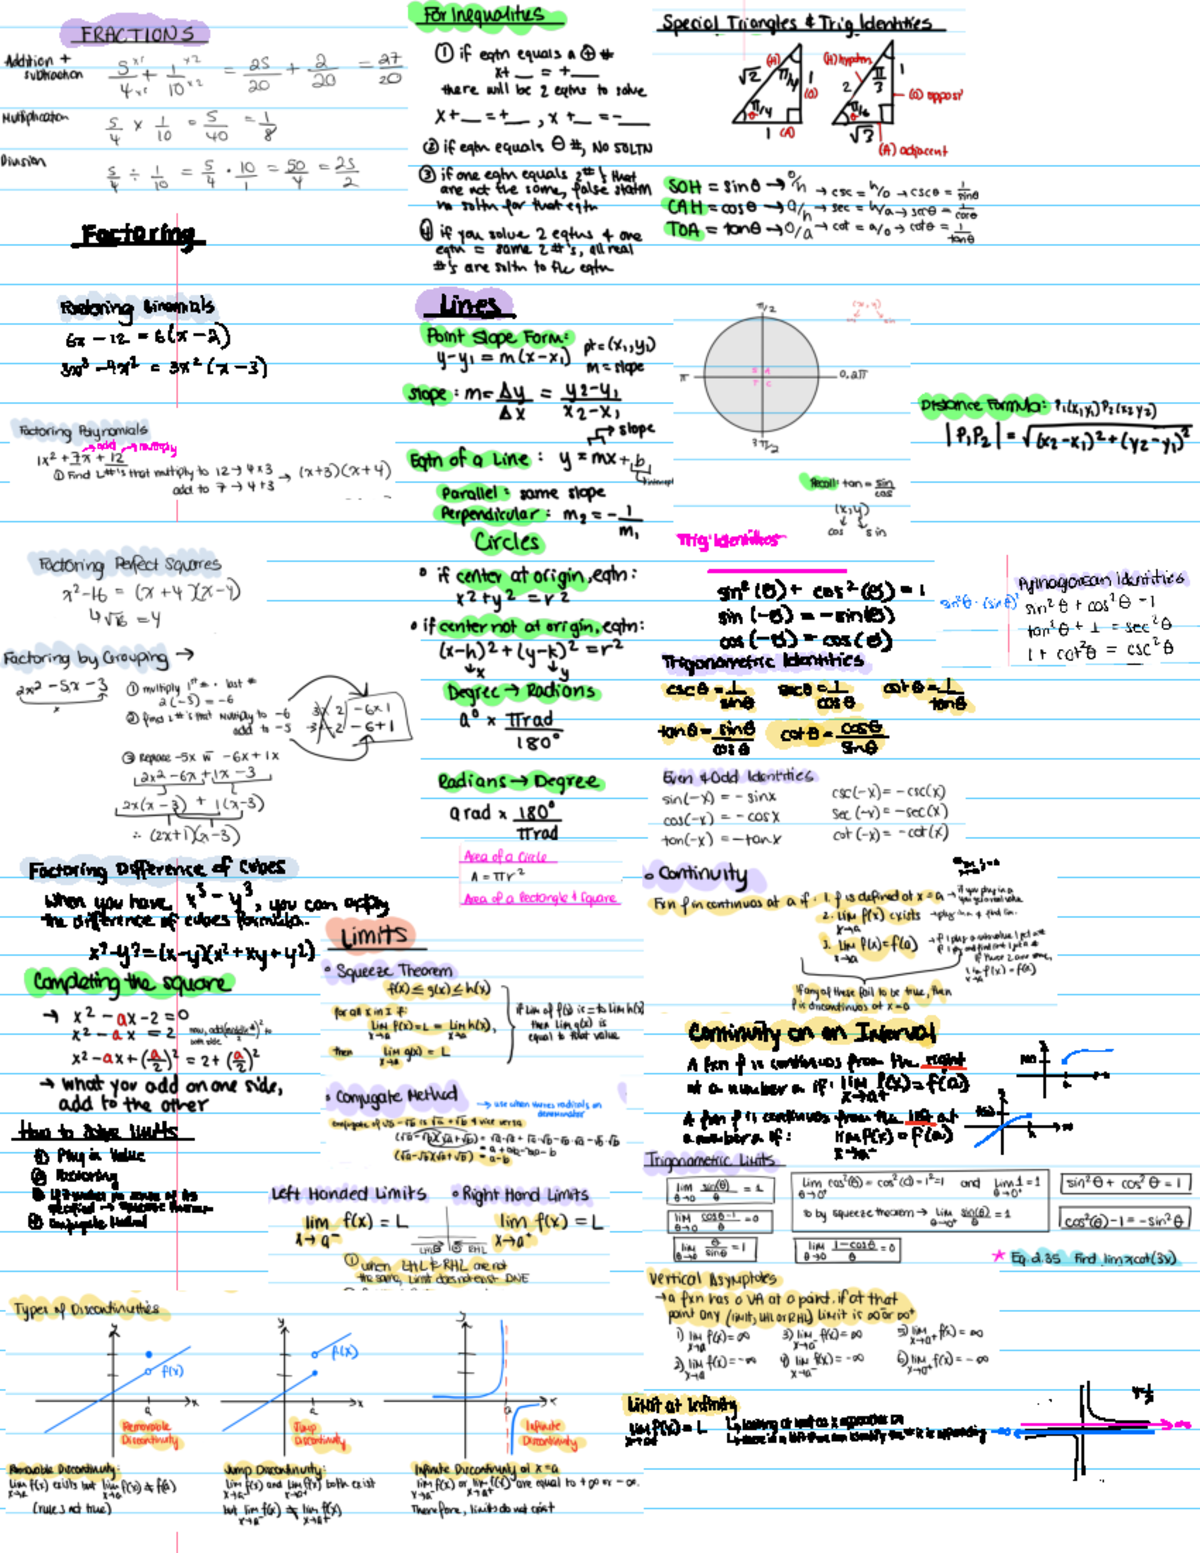 FRACTIONS
Addition + subtraction
5/4 ×5 + 1/10 ×2 = 25/20 + 2/20 = 27/20
Multiplication
5/4 × 1/10 = 5/40 = 1/8
Division
5/4 ÷ 1/10 = 5/4 · 10/1 = 50/4 = 25/2
Factoring
Factoring Binomials
6x − 12 = 6(x − 2)
3x³ − 9x² = 3x² (x − 3)
Factoring Polynomials
→ add → multiply
1x² + 7x + 12
① Find 2 #'s that multiply to 12 → 4 x 3 → (x+3)(x+4)
add to 7 → 4+3
Factoring Perfect Squares
x² − 16 = (x + 4)(x − 4)
↳ √16 = 4
Factoring by Grouping →
2x² − 5x − 3
① multiply 1st · last #
2(−3) = −6
② find 2 #'s that multiply to −6
add to −5
−6 x 1
−6 + 1
③ Replace −5x w −6x + 1x
2x² − 6x + 1x − 3
2x(x − 3) + 1(x − 3)
∴ (2x+1)(x−3)
Factoring Difference of Cubes
when you have x³ − y³, you can apply
the difference of cubes formula.
x³ − y³ = (x−y)(x² + xy + y²)
Completing the square
→ x² − ax − 2 = 0
x² − ax = 2
x² − ax + (a/2)² = 2 + (a/2)²
→ what you add on one side,
add to the other
How to solve limits
① Plug in value
② Factoring
④ Conjugate Method
For Inequalities
① if eqtn equals a ⊕ #
x+ __ = + __
there will be 2 eqtns to solve
x + __ = + __ , x + __ = − __
② if eqtn equals ⊖ #, NO SOLTN
③ if one eqtn equals 2 #'s that
are not the same, false statm
no soltn for that eqtn
④ if you solve 2 eqtns & one
eqtn = same 2 #'s, all real
#'s are soltn to the eqtn
Lines
Point Slope Form:
y − y₁ = m(x − x₁) pt = (x₁, y₁)
m = slope
Slope: m = Δy/Δx = y₂ − y₁ / x₂ − x₁
→ slope
Eqtn of a Line: y = mx + b
intercept
Parallel: same slope
Perpendicular: m₂ = − 1/m₁
Circles
• if center at origin, eqtn:
x² + y² = r²
• if center not at origin, eqtn:
(x−h)² + (y−k)² = r²
↳ x ↳ y
Degree → Radians
a° × πrad/180°
Radians → Degree
a rad × 180°/πrad
Area of a Circle
A = πr²
Area of a Rectangle & Square
Special Triangles & Trig Identities
√2 (H) π/4 1 (O) π/4 θ 1 (A)
(H) hypotn 2 π/3 1 (O) opposit π/6 θ √3
(A) adjacent
SOH = sinθ → o/h → csc = h/o → cscθ = 1/sinθ
CAH = cosθ → a/h → sec = h/a → secθ = 1/cosθ
TOA = tanθ → o/a → cot = a/o → cotθ = 1/tanθ
π/2
(x, y)
cos sin
S A
π 0, 2π
T C
3π/2
Distance Formula: P₁(x₁y₁) P₂(x₂y₂)
|P₁P₂| = √(x₂ − x₁)² + (y₂ − y₁)²
Recall: tan = sin/cos
(x, y)
cos sin
Trig Identities
sin²(θ) + cos²(θ) = 1
sin (−θ) = −sin(θ)
cos (−θ) = cos(θ)
Pythagorean Identities
sin²θ = (sinθ)²
sin²θ + cos²θ = 1
tan²θ + 1 = sec²θ
1 + cot²θ = csc²θ
Trigonometric Identities
cscθ = 1/sinθ secθ = 1/cosθ cotθ = 1/tanθ
tanθ = sinθ/cosθ cotθ = cosθ/sinθ
Even & Odd Identities
sin(−x) = − sinx csc(−x) = − csc(x)
cos(−x) = − cosx sec(−x) = − sec(x)
tan(−x) = − tanx cot(−x) = − cot(x)
• Continuity
Fxn f in continuos at a if: 1. f is defined at x = a
2. lim x→a f(x) exists
3. lim x→a f(x) = f(a)
lim x→a f(x) = f(a)
if any of these fail to be true, then
f is discontinuos at x = a
Continuity on an Interval
A fxn f is continuos from the right
at a number a if: lim x→a+ f(x) = f(a)
A fxn f is continuos from the left at
a number a if: lim x→a− f(x) = f(a)
Limits
• Squeeze Theorem
f(x) ≤ g(x) ≤ h(x)
for all x in I if:
lim x→a f(x) = L = lim x→a h(x),
then lim x→a g(x) = L
if lim of f(x) is = to lim h(x)
then lim g(x) is
equal to that value
• Conjugate Method
→ use when theres radicals on denominator
conjugate of √a − √b is √a + √b & vice versa
(√a − √b)(√a + √b) = √a·√a + √a·√b − √b·√a − √b·√b
= a + ab − ab − b
(√a − √b)(√a + √b) = a − b
Left Handed Limits • Right Hand Limits
lim x→a− f(x) = L lim x→a+ f(x) = L
LHL RHL
① when LHL & RHL are not
the same, Limit does not exist DNE
Trigonometric Limits
lim θ→0 sin(θ)/θ = 1
lim θ→0 cosθ−1/θ = 0
lim θ→0 θ/sinθ = 1
lim θ→0 cos²(θ) = cos²(0) = 1² = 1 and lim θ→0 1 = 1
so by squeeze theorem → lim θ→0 sin(θ)/θ = 1
lim θ→0 1−cosθ/θ = 0
sin²θ + cos²θ = 1
cos²(θ) − 1 = −sin²θ
★ Eq. 2.35 Find lim x cot(3x)
Vertical Asymptotes
→ a fxn has a VA at a point. if at that
point any (limit, LHL or RHL) limit is ∞ or ∞⁺
1) lim x→a f(x) = ∞ 3) lim x→a− f(x) = ∞ 5) lim x→a+ f(x) = ∞
2) lim x→a f(x) = −∞ 4) lim x→a− f(x) = −∞ 6) lim x→a+ f(x) = −∞
Limit at Infinity
lim x→∞ f(x) = L
Types of Discontinuities
f(x)
a
x
y
Removable Discontinuity
f(x)
a
x
y
Jump Discontinuity
y
a
x
Infinite Discontinuity
Removable Discontinuity:
lim x→a f(x) exists but lim x→a f(x) ≠ f(a)
(rule 3 not true)
Jump Discontinuity:
lim x→a− f(x) and lim x→a+ f(x) both exist
but lim x→a− f(x) ≠ lim x→a+ f(x)
Infinite Discontinuity at x = a
lim x→a− f(x) or lim x→a+ f(x) are equal to +∞ or −∞.
Therefore, limits do not exist